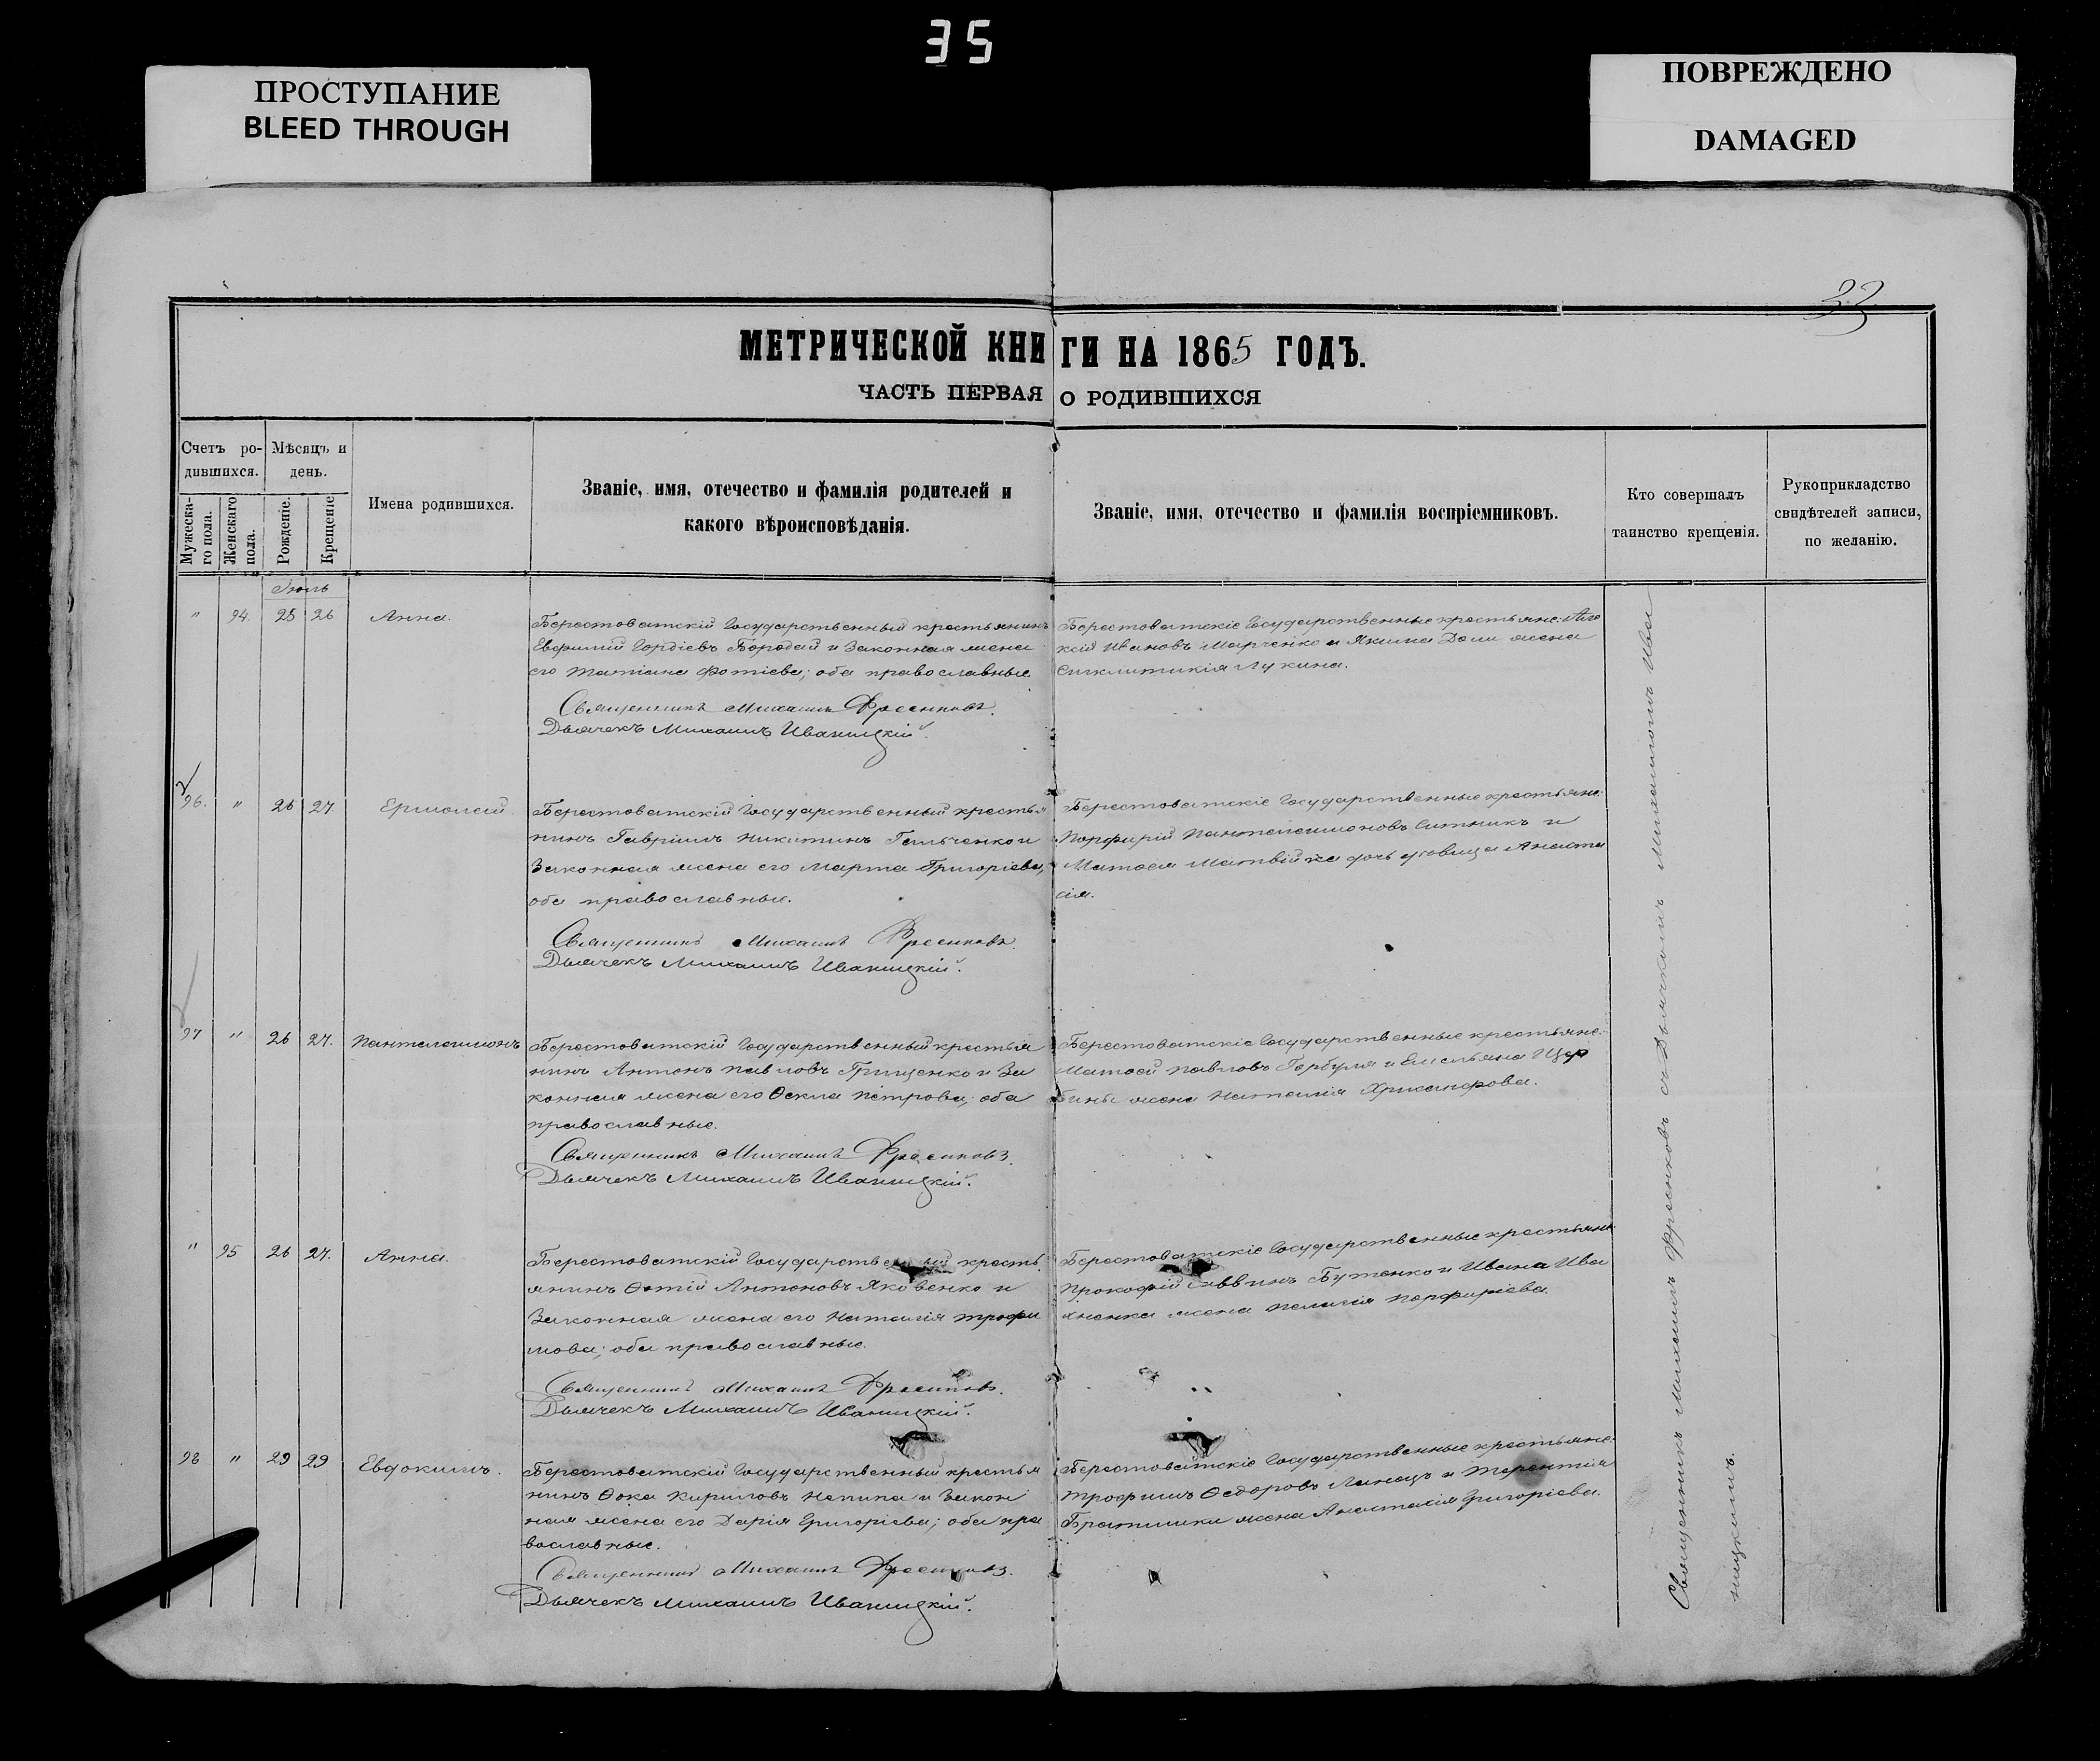 35
ПРОСТУПАНИЕ
BLEED THROUGH
ПОВРЕЖДЕНО
DAMAGED
33
МЕТРИЧЕСКОЙ КНИГИ НА 1865 ГОДЪ.
ЧАСТЬ ПЕРВАЯ О РОДИВШИХСЯ
Счетъ ро-
дившихся.
Мѣсяцъ и
день.
Мужеска-
го пола.
Женскаго
пола.
Рожденіе.
Крещеніе
Имена родившихся.
Званіе, имя, отечество и фамилія родителей и
какого вѣроисповѣданія.
Званіе, имя, отечество и фамилія воспріемниковъ.
Кто совершалъ
таинство крещенія.
Рукоприкладство
свидѣтелей записи,
по желанію.
Іюль
" 94. 25 26 Анна.
Берестоватскій Государственный крестьянинъ
Евфимій Гордіевъ Бородай и Законная жена
его Татіана Фотіева; оба православные
Священникъ Михаилъ
Дьячекъ Михаилъ Иваницкій.
Берестоватскіе Государственные крестьяне: Але
ксій Ивановъ Марченко и Якима Доли жена
Синклитикія Лукина.
96. " 26 27 Ермолай.
Берестоватскій Государственный крестья
нинъ Гавріилъ Никитинъ Гальченко и
Законная жена его Марта Григоріева,
оба православные.
Священникъ Михаилъ
Дьячекъ Михаилъ Иваницкій.
Берестоватскіе Государственные крестьяне:
Порфирій Пантелеимоновъ Ситникъ и
Матвія дочь Анаста
сія.
97 " 26 27. Пантелеимонъ
Берестоватскій Государственный крестья
нинъ Антонъ Павловъ Грищенко и За
конная жена его Ѳекла Петрова; оба
православные.
Священникъ Михаилъ
Дьячекъ Михаилъ Иваницкій.
Берестоватскіе Государственные крестьяне:
Матѳей Павловъ Гарбуля и Емельяна Щер
бины жена Наталія Хрисанфова.
" 95 26 27. Анна.
Берестоватскій Государственный кресть
янинъ Фотій Антоновъ Яковенко и
Законная жена его Наталія Трофи
мова; оба православные.
Священникъ Михаилъ
Дьячекъ Михаилъ Иваницкій.
Берестоватскіе Государственные крестьяне:
Прокофій Саввинъ Бутенко и Ивана Ива
жена Пелагія Порфиріева.
98 " 29 29 Евдокимъ.
Берестоватскій Государственный крестья
нинъ Ѳока Кириловъ Непипа и Закон
ная жена его Дарія Григоріева; оба пра
вославные.
Священникъ Михаилъ
Дьячекъ Михаилъ Иваницкій.
Берестоватскіе Государственные крестьяне:
Трофимъ Ѳедоровъ и Терентія
жена Анастасія Григоріева.
Священникъ Михаилъ съ Дьячкомъ Михаиломъ Ива
ницкимъ.